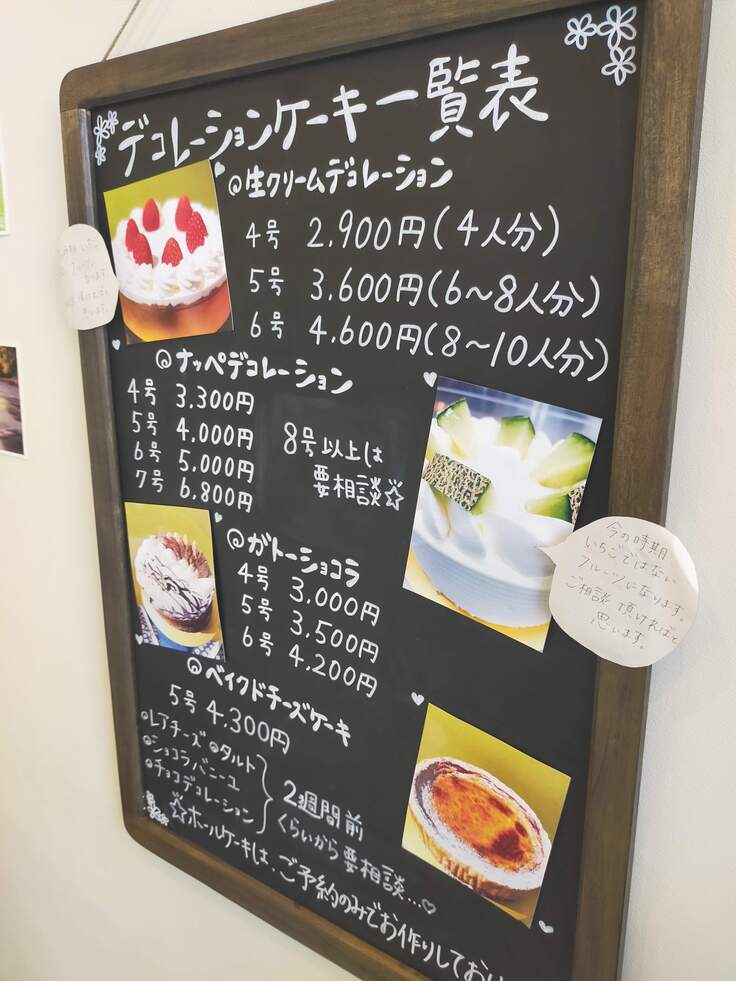 デコレーションケーキ一覧表
生クリームデコレーション
4号 2,900円(4人分)
5号 3,600円(6〜8人分)
6号 4,600円(8〜10人分)
ナッペデコレーション
4号 3,300円
5号 4,000円
6号 5,000円
7号 6,800円
8号以上は
要相談☆
ガトーショコラ
4号 3,000円
5号 3,500円
6号 4,200円
今の時期
いちごではない
フルーツになります。
ご相談頂ければと
思います。
ベイクドチーズケーキ
5号 4,300円
レアチーズ タルト
ショコラバニーユ
チョコデコレーション
2週間前
くらいから要相談...♡
☆ホールケーキは、ご予約のみでお作りしてお